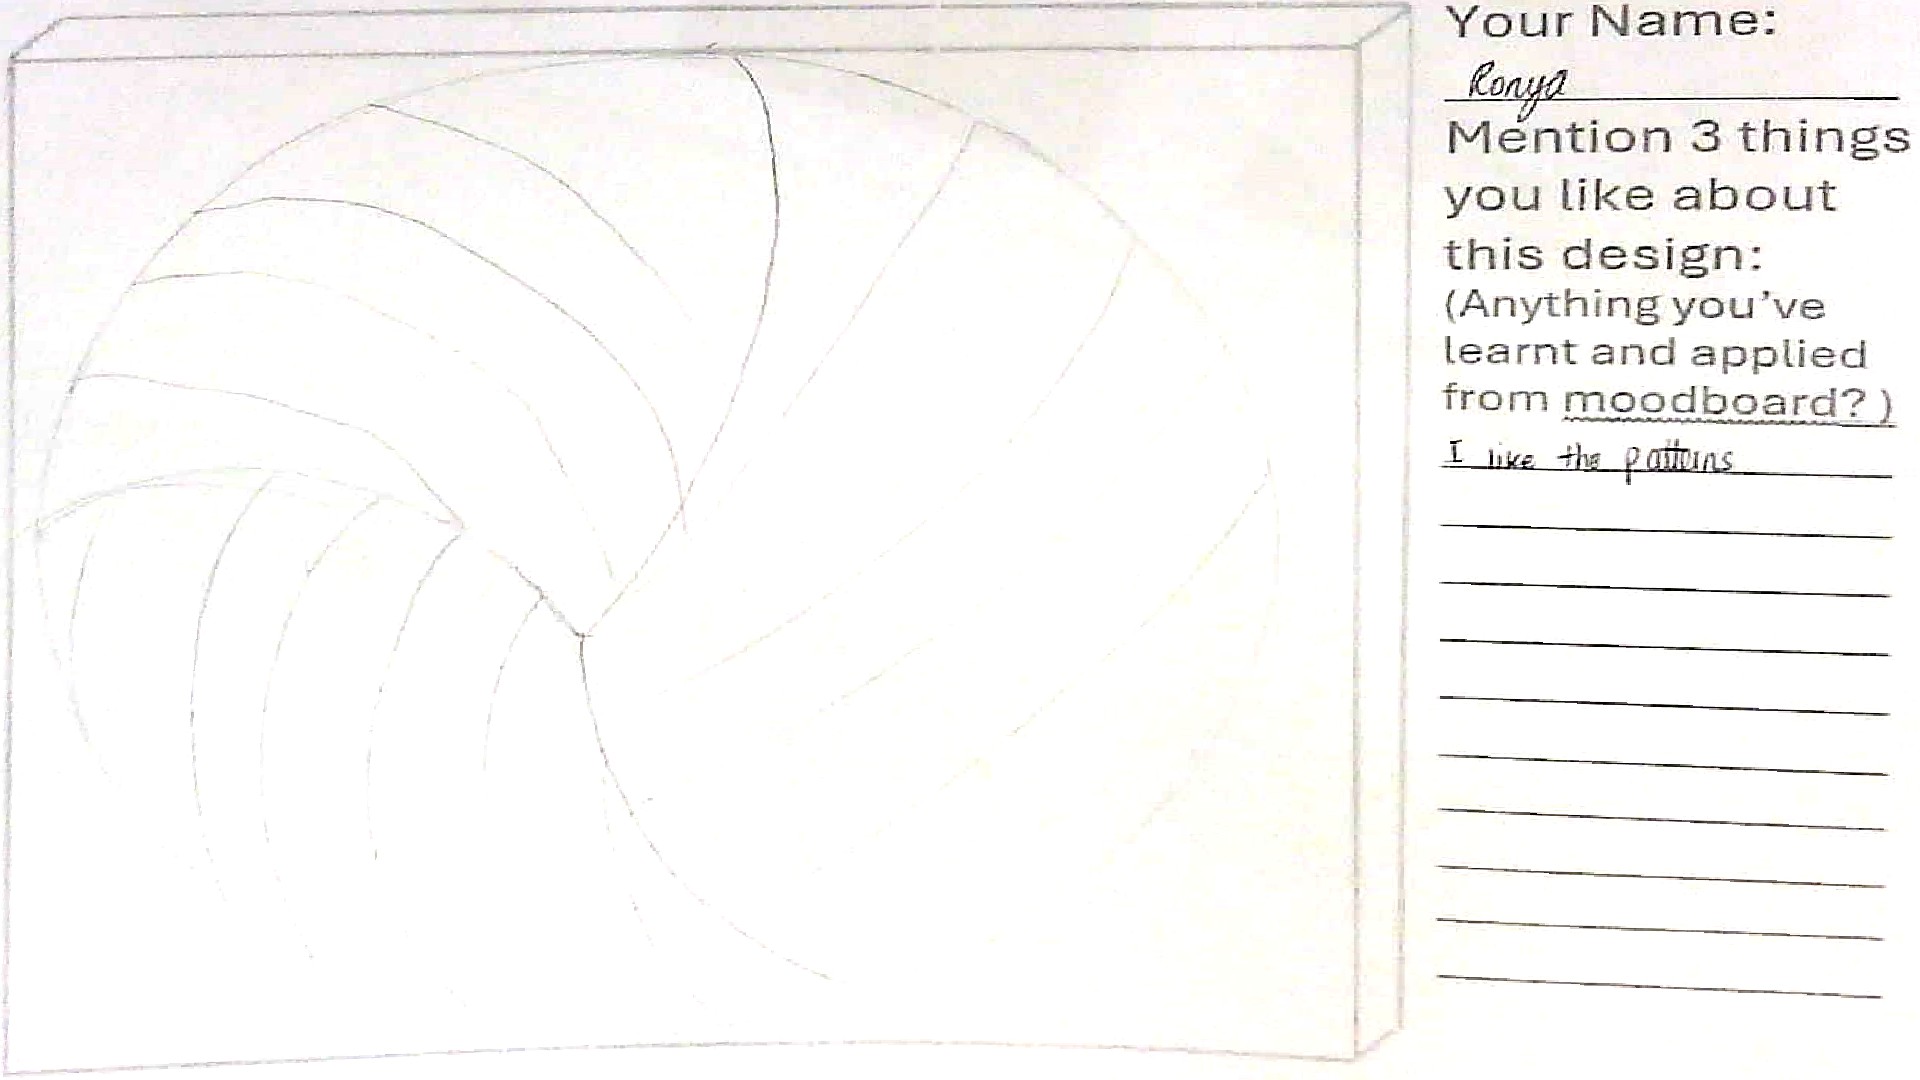 Your Name:
Ronya
Mention 3 things
you like about
this design:
(Anything you've
learnt and applied
from moodboard? )
I like the patterns